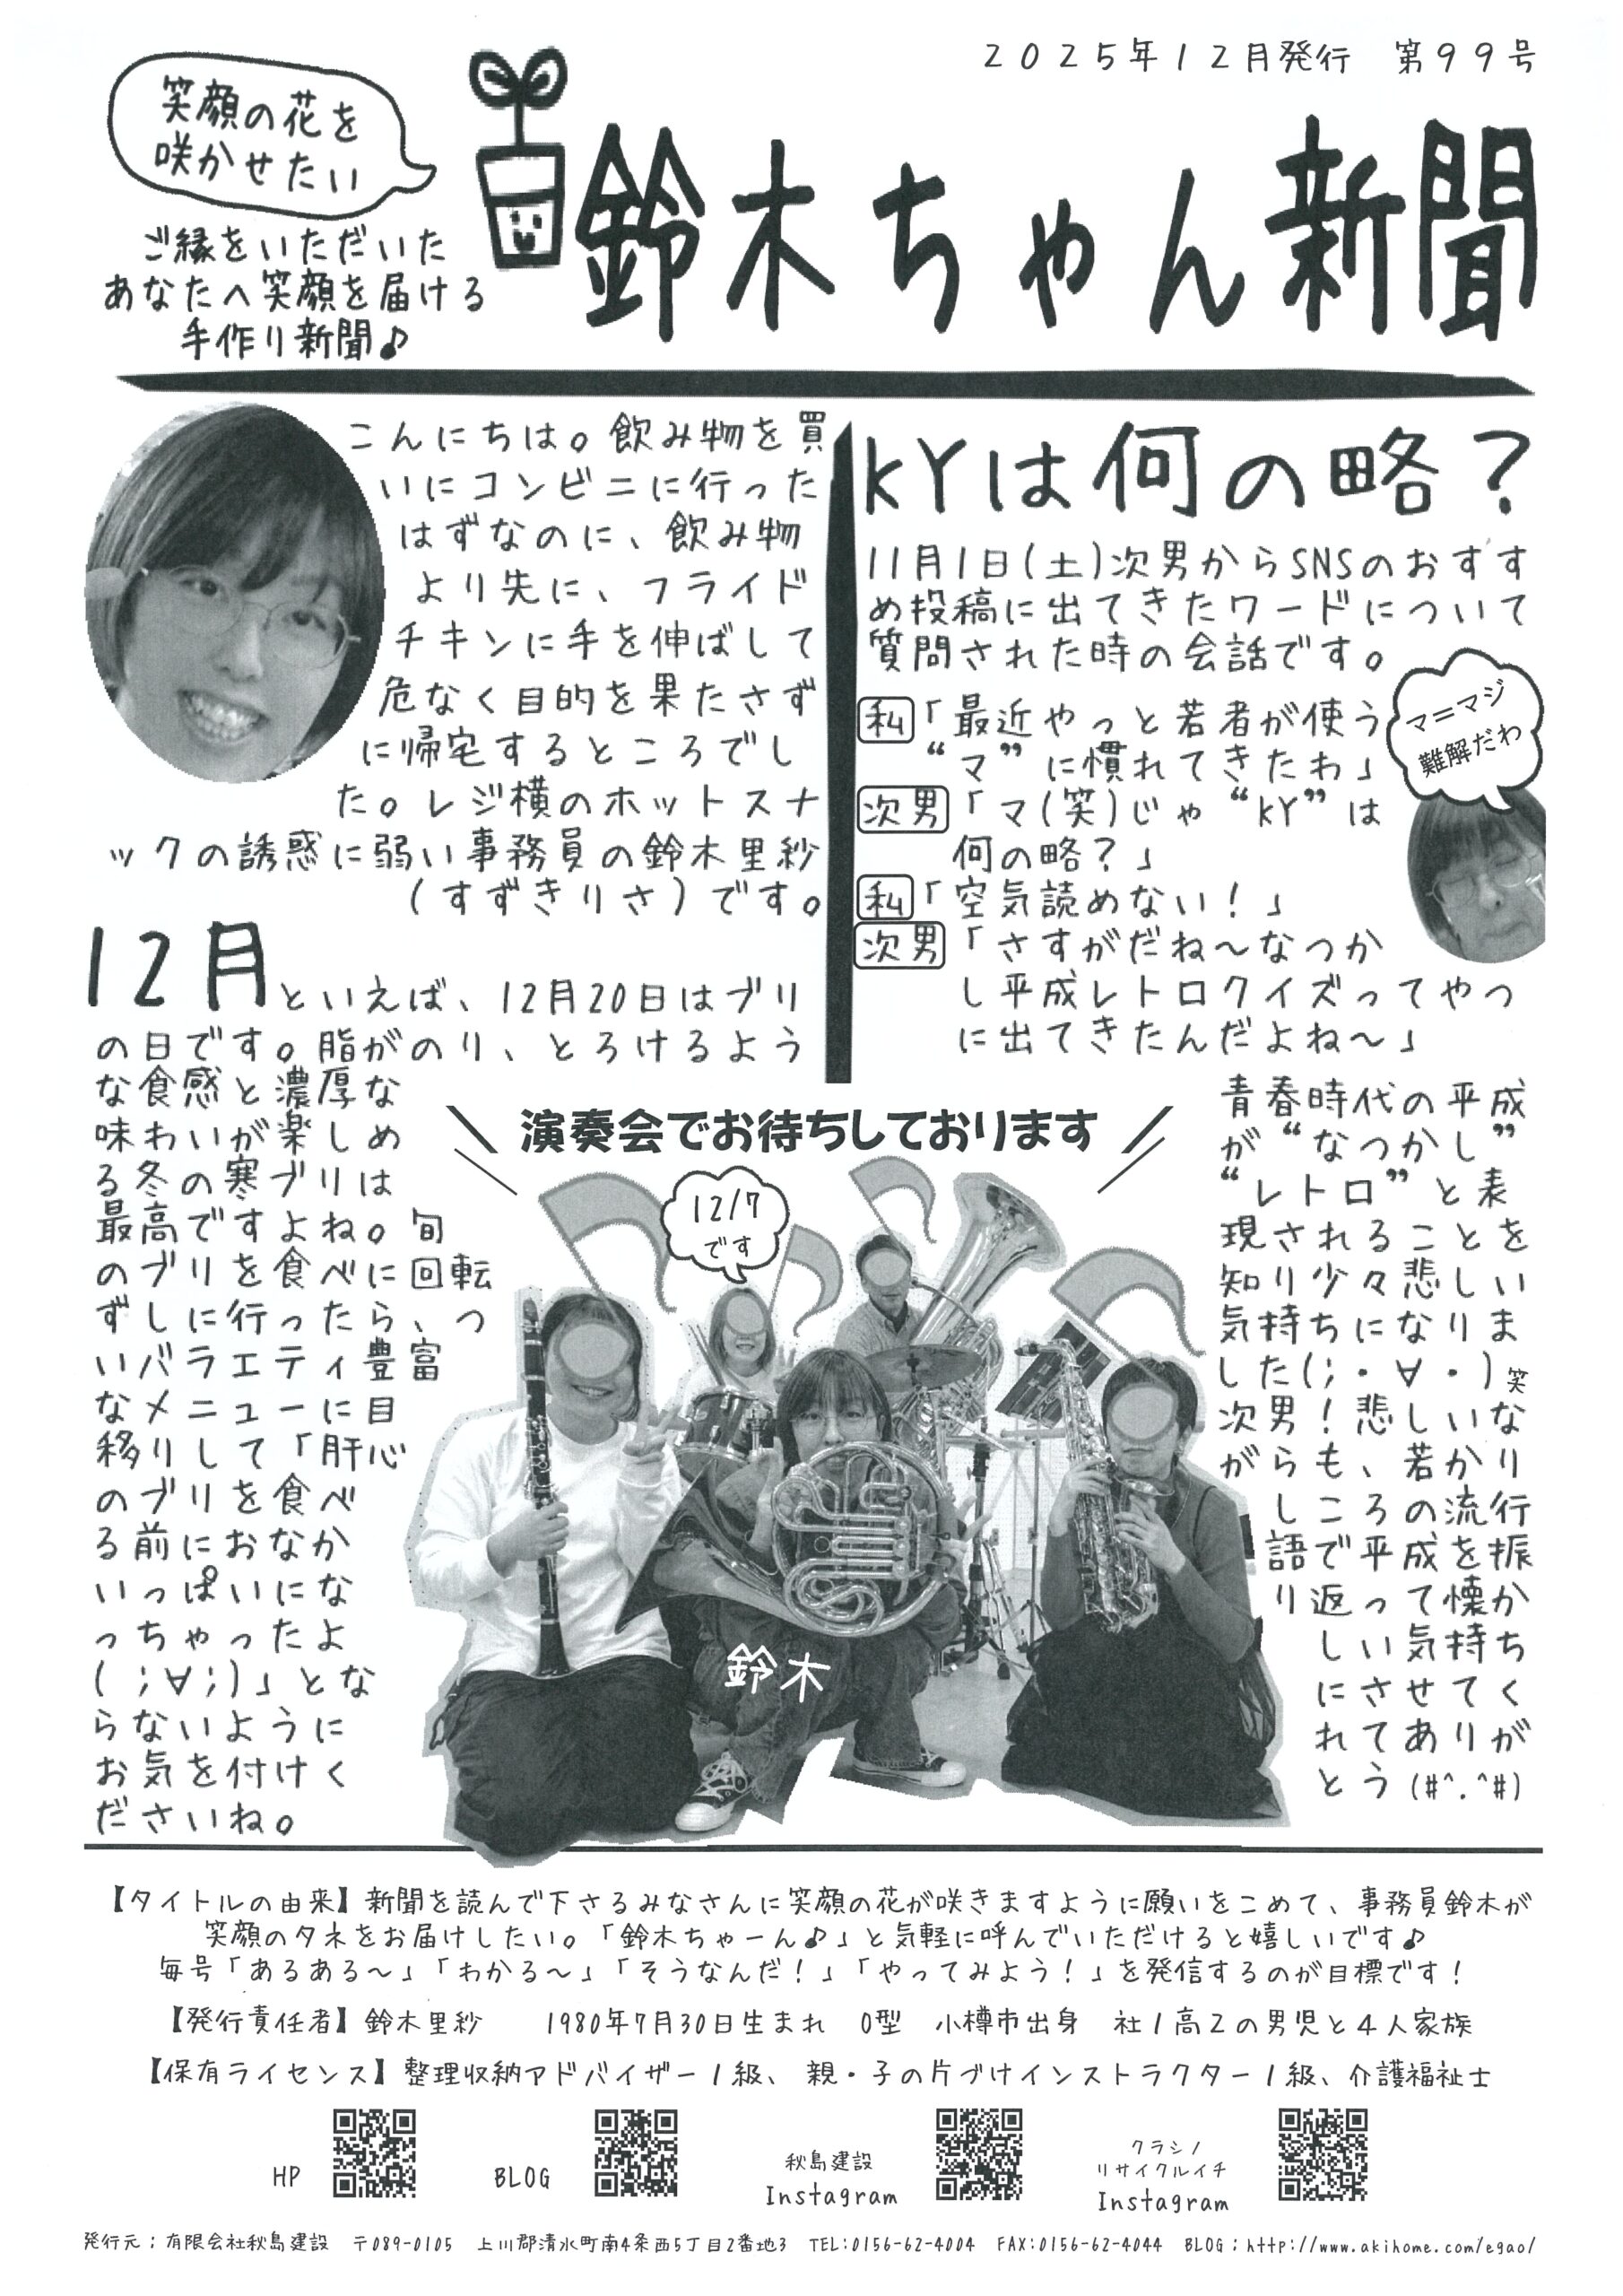 2025年12月発行　第99号
笑顔の花を
咲かせたい
鈴木ちゃん新聞
ご縁をいただいた
あなたへ笑顔を届ける
手作り新聞♪
こんにちは。飲み物を買
いにコンビニに行った
はずなのに、飲み物
より先に、フライド
チキンに手を伸ばして
危なく目的を果たさず
に帰宅するところでし
た。レジ横のホットスナ
ックの誘惑に弱い事務員の鈴木里紗
(すずきりさ)です。
12月といえば、12月20日はブリ
の日です。脂がのり、とろけるよう
な食感と濃厚な
味わいが楽しめ
る冬の寒ブリは
最高ですよね。旬
のブリを食べに回転
ずしに行ったら、つ
いバラエティ豊富
なメニューに目
移りして「肝心
のブリを食べ
る前におなか
いっぱいにな
っちゃったよ
(;∀;)」とな
らないように
お気を付けく
ださいね。
KYは何の略？
11月1日(土)次男からSNSのおすす
め投稿に出てきたワードについて
質問された時の会話です。
私「最近やっと若者が使う
“マ”に慣れてきたわ」
マ＝マジ
難解だわ
次男「マ(笑)じゃ“KY”は
何の略？」
私「空気読めない！」
次男「さすがだね～なつか
し平成レトロクイズってやつ
に出てきたんだよね～」
青春時代の平成
が“なつかし”
“レトロ”と表
現されることを
知り少々悲しい
気持ちになりま
した(;・∀・)笑
次男！悲しいな
がらも、若かり
しころの流行
語で平成を振
り返って懐か
しい気持ち
にさせてく
れてありが
とう(#^.^#)
演奏会でお待ちしております
12/7
です
鈴木
【タイトルの由来】新聞を読んで下さるみなさんに笑顔の花が咲きますように願いをこめて、事務員鈴木が
笑顔のタネをお届けしたい。「鈴木ちゃーん♪」と気軽に呼んでいただけると嬉しいです♪
毎号「あるある～」「わかる～」「そうなんだ！」「やってみよう！」を発信するのが目標です！
【発行責任者】鈴木里紗　1980年7月30日生まれ　O型　小樽市出身　社1高2の男児と4人家族
【保有ライセンス】整理収納アドバイザー1級、親・子の片づけインストラクター1級、介護福祉士
HP
BLOG
秋島建設
Instagram
クラシノ
リサイクルイチ
Instagram
発行元：有限会社秋島建設　〒089-0105　上川郡清水町南4条西5丁目2番地3　TEL:0156-62-4004　FAX:0156-62-4044　BLOG：http://www.akihome.com/egao/